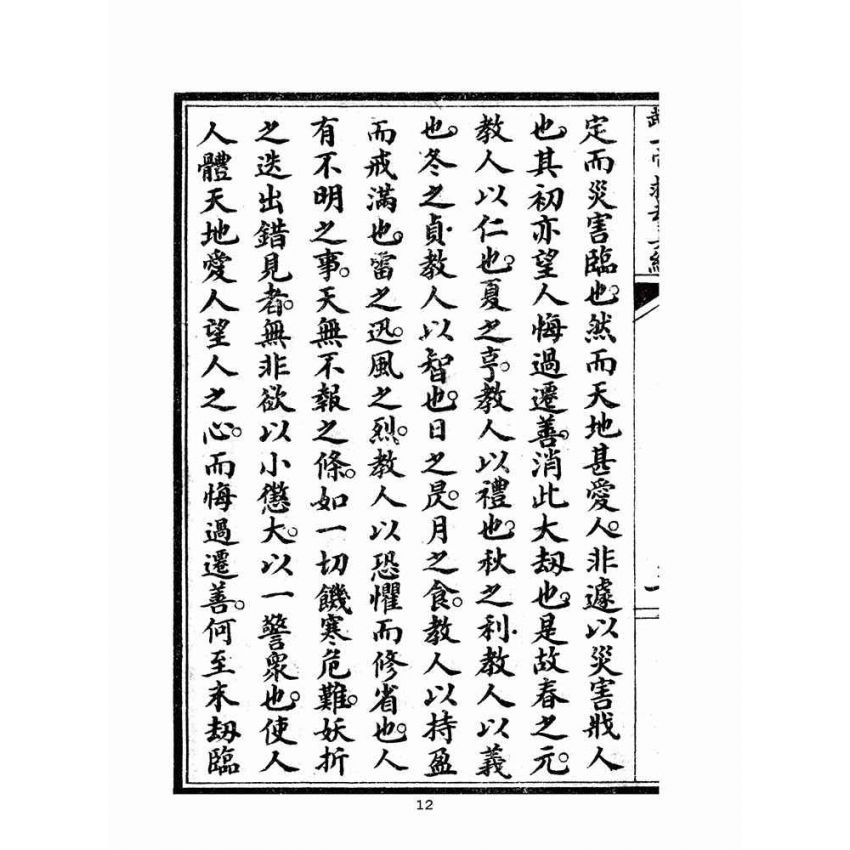 定而災害臨也。然而天地甚愛人。非遽以災害戕人
也其初亦望人悔過遷善。消此大刼也。是故春之元。
教人以仁也。夏之亨。教人以禮也。秋之利。教人以義
也。冬之貞。教人以智也。日之昃。月之食。教人以持盈
而戒滿也。雷之迅。風之烈。教人以恐懼而修省也。人
有不明之事。天無不報之條。如一切饑寒危難。妖折
之迭出錯見者。無非欲以小懲大。以一警衆也。使人
人體天地愛人望人之心。而悔過遷善。何至末刼臨
12